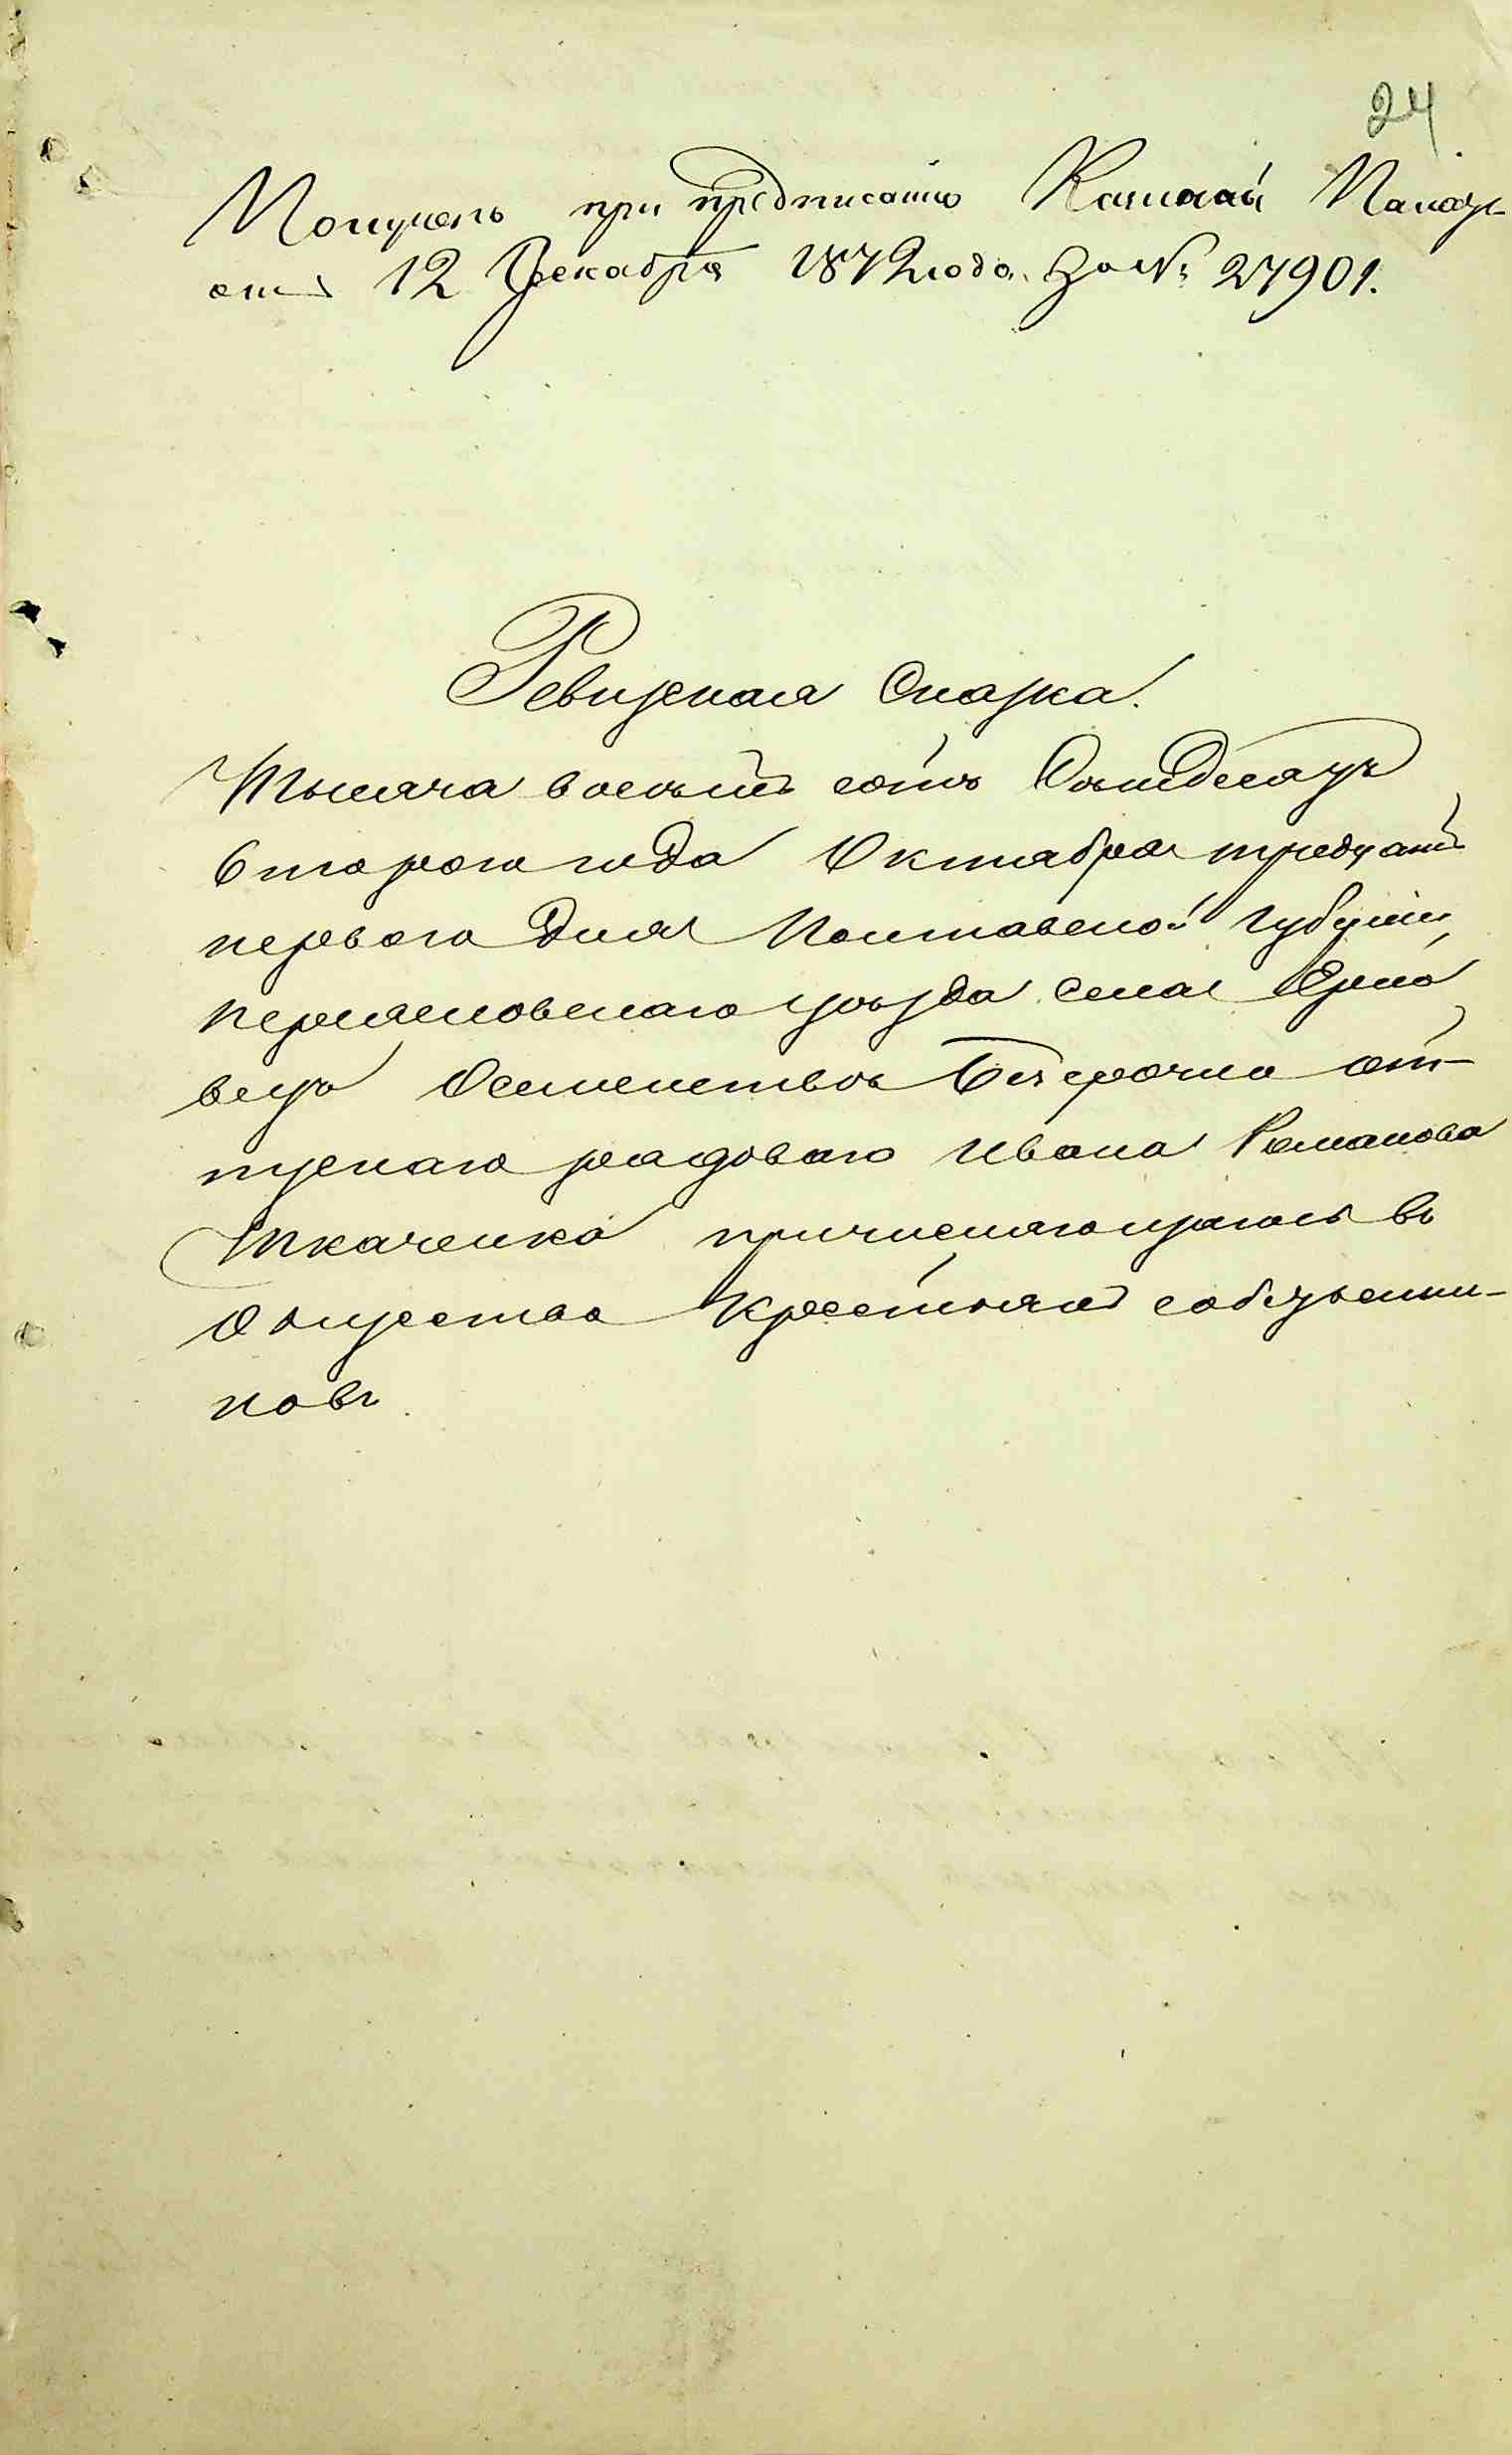 24
Получено при предписанiи Казенной Палаты
отъ 12 Декабря 1872 года за № 27901.
Ревизская Сказка.
Тысяча восемь сотъ Семьдесятъ
второго года Октября тридцать
первого дня Полтавской губернiи
Переяславскаго уѣзда села
о семействѣ безсрочно от-
пускнаго рядоваго Ивана Романова
Ткаченко причисляющагося въ
общество крестьянъ собственни-
ковъ